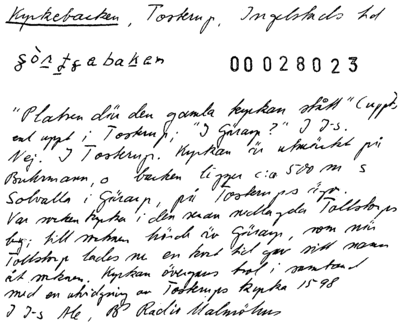 Kyrkebacken, Tosterup, Ingelstads hd
00028023
"Platsen där den gamla kyrkan stått" (uppt.
enl uppt i Tosterup; "I Gärarp?" I J-s.
Nej. I Tosterup. Kyrkan är utmärkt på
Buhrmann, o backen ligger c:a 500 m s
Solvalla i Gärarp, på Tosterups ägor.
Var socken kyrka i den sedan nedlagda Tollstorps
till socknen hörde äv Gärarp, som när
Tollstorp lades ne en kort tid gav sitt namn
åt socknen. Kyrkan övergavs trol i samband
med en utvidgning av Tosterups kyrka 1598
I J-s Ale, Radio Malmöhus